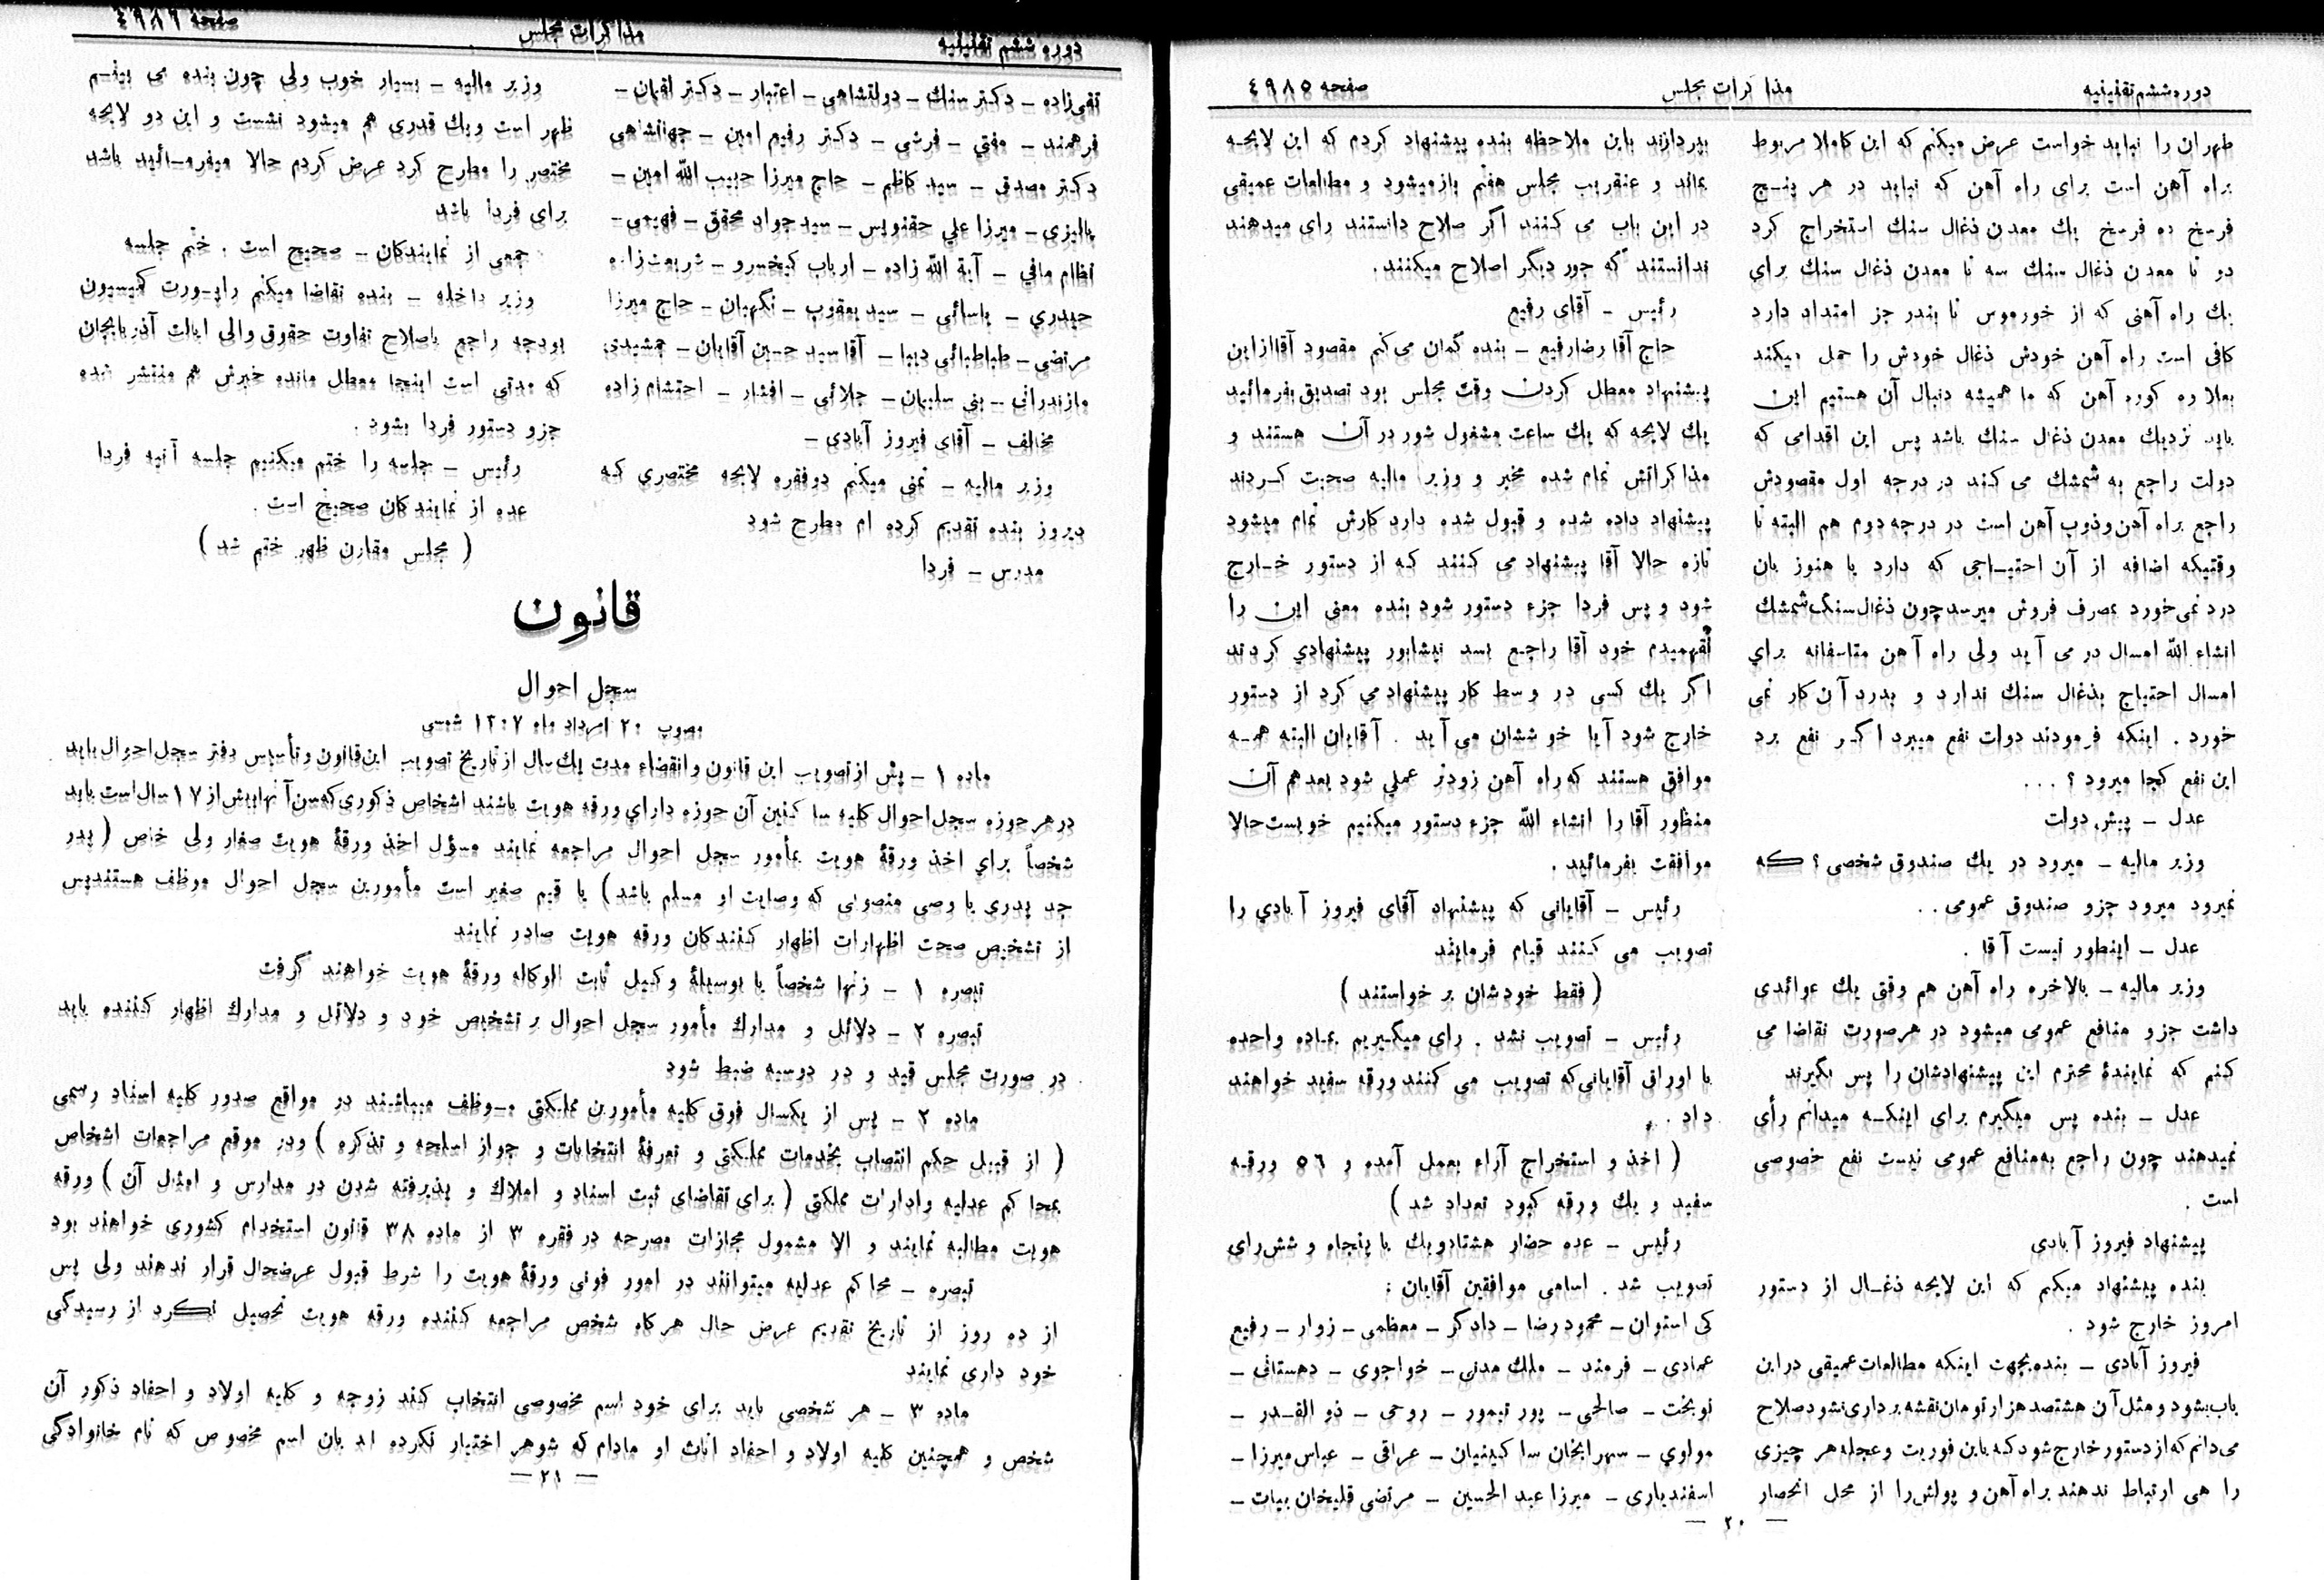 دوره ششم تقنینیه
مذاکرات مجلس
صفحه ٤٩٨٥
طهران را نباید خواست عرض میکنم که این کاملا مربوط
براه آهن است برای راه آهن که نباید در هر پنـج
فرسخ ده فرسخ یك معدن ذغال سنك استخراج کرد
دو تا معدن ذغال سنك سه تا معدن ذغال سنك برای
یك راه آهنی که از خورموس تا بندر جز امتداد دارد
کافی است راه آهن خودش ذغال خودش را حمل میکند
بعلاوه کوره آهن که ما همیشه دنبال آن هستیم این
باید نزدیك معدن ذغال سنك باشد پس این اقدامی که
دولت راجع به شمشك می کند در درجه اول مقصودش
راجع براه آهن وذوب آهن است در درجه دوم هم البته تا
وقتیکه اضافه از آن احتیـاجی که دارد یا هنوز بان
درد نمی خورد بمصرف فروش میرسد چون ذغال سنگ شمشك
انشاء الله امسال در می آید ولی راه آهن متاسفانه براي
امسال احتیاج بذغال سنك ندارد و بدرد آن کار نمی
خورد . اینکه فرمودند دولت نفع میبرد اگـر نفع برد
این نفع کجا میرود ؟ . . .
عدل - پیش دولت
وزیر مالیه - میرود در یك صندوق شخصی ؟ که
نمیرود میرود جزو صندوق عمومی . .
عدل - اینطور نیست آقا .
وزیر مالیه - بالاخره راه آهن هم وقتی یك عوائدی
داشت جزو منافع عمومی میشود در هر صورت تقاضا می
کنم که نمایندۀ محترم این پیشنهادشان را پس بگیرند
عدل - بنده پس میگیرم برای اینکـه میدانم رأی
نمیدهند چون راجع به منافع عمومی نیست نفع خصوصی
است .
پیشنهاد فیروز آبادی
بنده پیشنهاد میکنم که این لایحه ذغـال از دستور
امروز خارج شود .
فیروز آبادی - بنده بجهت اینکه مطالعات عمیقی در این
باب بشود و مثل آن هشتصد هزار تومان نقشه برداری نشود صلاح
می دانم که از دستور خارج شود که باین فوریت و عجله هر چیزی
را هی ارتباط ندهند براه آهن و پولش را از محل انحصار
بپردازند باین ملاحظه بنده پیشنهاد کردم که این لایحـه
بماند و عنقریب مجلس هفتم باز میشود و مطالعات عمیقی
در این باب می کنند اگر صلاح دانستند رای میدهند
ندانستند که جور دیگر اصلاح میکنند .
رئیس - آقای رفیع
حاج آقا رضا رفیع - بنده گمان می کنم مقصود آقا از این
پیشنهاد معطل کردن وقت مجلس بود تصدیق بفرمائید
یك لایحه که یك ساعت مشغول شور در آن هستند و
مذاکراتش تمام شده مخبر و وزیر مالیه صحبت کـردند
پیشنهاد داده شده و قبول شده دارد کارش تمام میشود
تازه حالا آقا پیشنهاد می کنند که از دستور خـارج
شود و پس فردا جزء دستور شود بنده معنی این را
نفهمیدم خود آقا راجع بسد نیشابور پیشنهادي کردند
اگر یك کسی در وسط کار پیشنهاد می کرد از دستور
خارج شود آیا خوششان می آید . آقایان البته همـه
موافق هستند که راه آهن زودتر عملی شود بعد هم آن
منظور آقا را انشاء الله جزء دستور میکنیم خوبست حالا
موافقت بفرمائید .
رئیس - آقایانی که پیشنهاد آقای فیروز آبادي را
تصویب می کنند قیام فرمایند
( فقط خودشان بر خواستند )
رئیس - تصویب نشد . رای میگیریم بماده واحده
با اوراق آقایانی که تصویب می کنند ورقه سفید خواهند
داد .
( اخذ و استخراج آراء بعمل آمده و ٥٦ ورقـه
سفید و یك ورقه کبود تعداد شد )
رئیس - عده حضار هشتاد و یك با پنجاه و شش رای
تصویب شد . اسامی موافقین آقایان :
کی استوان - محمود رضا - دادگر - معظمی - زوار - رفیع
عمادی - فرمند - ملك مدنی - خواجوی - دهستانی -
نوبخت - صالحی - پور تیمور - روحی - ذو القـدر -
مولوي - سهرابخان ساکینیان - عراقی - عباس میرزا -
اسفندیاری - میرزا عبد الحسین - مرتضی قلیخان بیات -
— ٢٠ —
دوره ششم تقنینیه
مذاکرات مجلس
صفحه ٤٩٨٦
تقی زاده - دکتر سنك - دولتشاهی - اعتبار - دکتر لقمان -
فرهمند - مفتی - فرشی - دکتر رفیع امین - جهانشاهی
دکتر مصدق - سید کاظم - حاج میرزا حبیب الله امین -
پالیزی - میرزا علي حقنویس - سید جواد محقق - فهیمی -
نظام مافي - آیة الله زاده - ارباب کیخسرو - شریعت زاده
حیدري - یاسائی - سید یعقوب - نگهبان - حاج میرزا
مرتضی - طباطبائی دیبا - آقا سید حسین آقایان - جمشیدی
مازندرانی - بنی سلیمان - جلائی - افشار - احتشام زاده
مخالف - آقای فیروز آبادي -
وزیر مالیه - تمنی میکنم دو فقره لایحه مختصري که
دیروز بنده تقدیم کرده ام مطرح شود
مدرس - فردا
وزیر مالیه - بسیار خوب ولی چون بنده می بینـم
ظهر است ویك قدري هم میشود نشست و این دو لایحه
مختصر را مطرح کرد عرض کردم حالا میفرمـائید باشد
برای فردا باشد
جمعی از نمایندکان - صحیح است . ختم جلسه
وزیر داخله - بنده تقاضا میکنم راپـورت کمیسیون
بودجه راجع باصلاح تفاوت حقوق والی ایالت آذربایجان
که مدتی است اینجا معطل مانده خبرش هم منتشر شده
جزو دستور فردا بشود .
رئیس - جلسه را ختم میکنیم جلسه آتیه فردا
عده از نمایندکان صحیح است .
( مجلس مقارن ظهر ختم شد )
قانون
سجل احوال
مصوب ٢٠ امرداد ماه ١٣٠٧ شمسی
ماده ١ - پش از تصویب این قانون و انقضاء مدت یك سال از تاریخ تصویب این قانون و تأسیس دفتر سجل احوال باید
در هر حوزه سجل احوال کلیه ساکنین آن حوزه داراي ورقه هویت باشند اشخاص ذکوری که سن آنها بیش از ١٧ سال است باید
شخصاً براي اخذ ورقۀ هویت بمأمور سجل احوال مراجعه نمایند مسؤل اخذ ورقۀ هویت صغار ولی خاص ( پدر
جد پدری یا وصی منصوبی که وصایت او مسلم باشد ) یا قیم صغیر است مأمورین سجل احوال موظف هستند پس
از تشخیص صحت اظهارات اظهار کنندکان ورقه هویت صادر نمایند
تبصره ١ - زنها شخصاً یا بوسیلۀ وکیل ثابت الوکاله ورقۀ هویت خواهند گرفت
تبصره ٢ - دلائل و مدارك مأمور سجل احوال بر تشخیص خود و دلائل و مدارك اظهار کننده باید
در صورت مجلس قید و در دوسیه ضبط شود
ماده ٢ - پس از یکسال فوق کلیه مأمورین مملکتی مـوظف میباشند در مواقع صدور کلیه اسناد رسمی
( از قبیل حکم انتصاب بخدمات مملکتی و تعرفۀ انتخابات و جواز اسلحه و تذکره ) و در موقع مراجعات اشخاص
بمحاکم عدلیه وادارات مملکتی ( برای تقاضای ثبت اسناد و املاك و پذیرفته شدن در مدارس و امثال آن ) ورقه
هویت مطالبه نمایند و الا مشمول مجازات مصرحه در فقره ٣ از ماده ٣٨ قانون استخدام کشوری خواهند بود
تبصره - محاکم عدلیه میتوانند در امور فوتی ورقۀ هویت را شرط قبول عرضحال قرار ندهند ولی پس
از ده روز از تاریخ تقدیم عرض حال هرکاه شخص مراجعه کننده ورقه هویت تحصیل نکرد از رسیدگی
خود داری نمایند
ماده ٣ - هر شخصی باید برای خود اسم مخصوصی انتخاب کند زوجه و کلیه اولاد و احفاد ذکور آن
شخص و همچنین کلیه اولاد و احفاد اناث او مادام که شوهر اختیار نکرده اند بان اسم مخصوص که نام خانوادگی
— ٢١ —